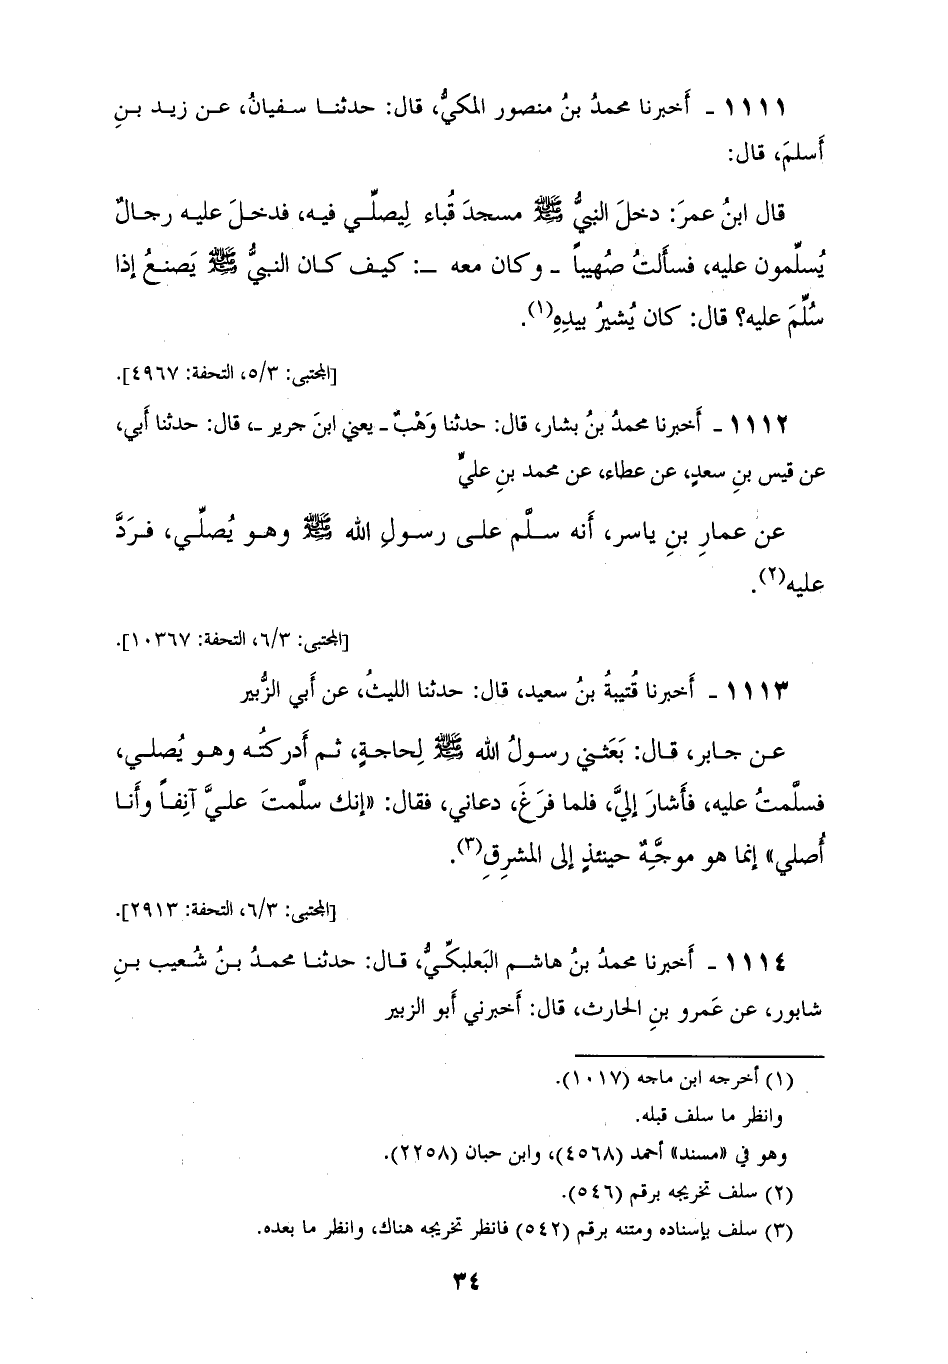 ١١١١ ـ أَخبرنا محمدُ بنُ منصور المكيُّ، قال: حدثنـا سـفيانُ، عـن زيـد بـنِ
أَسلمَ، قال:
قال ابنُ عمرَ: دخلَ النبيُّ ﷺ مسجدَ قُباء لِيصلِّـي فيـه، فدخـلَ عليـه رجـالٌ
يُسلِّمون عليه، فسأَلتُ صُهيباً ـ وكان معه ـ: كيـف كـان النـبيُّ ﷺ يَصنـعُ إذا
سُلِّمَ عليه؟ قال: كان يُشيرُ بيدِهِ(١).
[المجتبى: ٥/٣، التحفة: ٤٩٦٧].
١١١٢ ـ أَخبرنا محمدُ بنُ بشار، قال: حدثنا وَهْبٌ ـ يعني ابنَ جرير ـ، قال: حدثنا أَبي،
عن قيس بنِ سعدٍ، عن عطاء، عن محمد بنِ عليٍّ
عن عمارِ بنِ ياسر، أَنه سـلَّم علـى رسـولِ الله ﷺ وهـو يُصلِّـي، فـرَدَّ
عليه(٢).
[المجتبى: ٦/٣، التحفة: ١٠٣٦٧].
١١١٣ ـ أَخبرنا قُتيبةُ بنُ سعيد، قال: حدثنا الليثُ، عن أَبي الزُّبير
عـن جـابر، قـال: بَعَثني رسـولُ الله ﷺ لِحاجـةٍ، ثـم أَدركتُـه وهـو يُصلـي،
فسلَّمتُ عليه، فأَشارَ إليَّ، فلما فرَغَ، دعاني، فقال: «إنك سلَّمتَ علـيَّ آنِفـاً وأَنـا
أُصلي» إنما هو موجَّهٌ حينئذٍ إلى المشرِقِ(٣).
[المجتبى: ٦/٣، التحفة: ٢٩١٣].
١١١٤ ـ أَخبرنا محمدُ بنُ هاشـم البَعلبكِّيُّ، قـال: حدثنـا محمـدُ بـنُ شُـعيب بـنِ
شابور، عن عَمرو بنِ الحارث، قال: أَخبرني أَبو الزبير
(١) أخرجه ابن ماجه (١٠١٧).
وانظر ما سلف قبله.
وهو في «مسند» أحمد (٤٥٦٨)، وابن حبان (٢٢٥٨).
(٢) سلف تخريجه برقم (٥٤٦).
(٣) سلف بإسناده ومتنه برقم (٥٤٢) فانظر تخريجه هناك، وانظر ما بعده.
٣٤